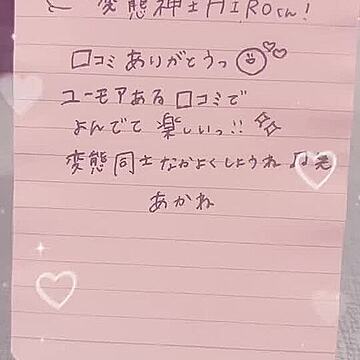 変態紳士HIROくん!
口コミありがとうっ
ユーモアある口コミで
よんでて楽しいっ!!
変態同士なかよくしようね♫笑
あかね